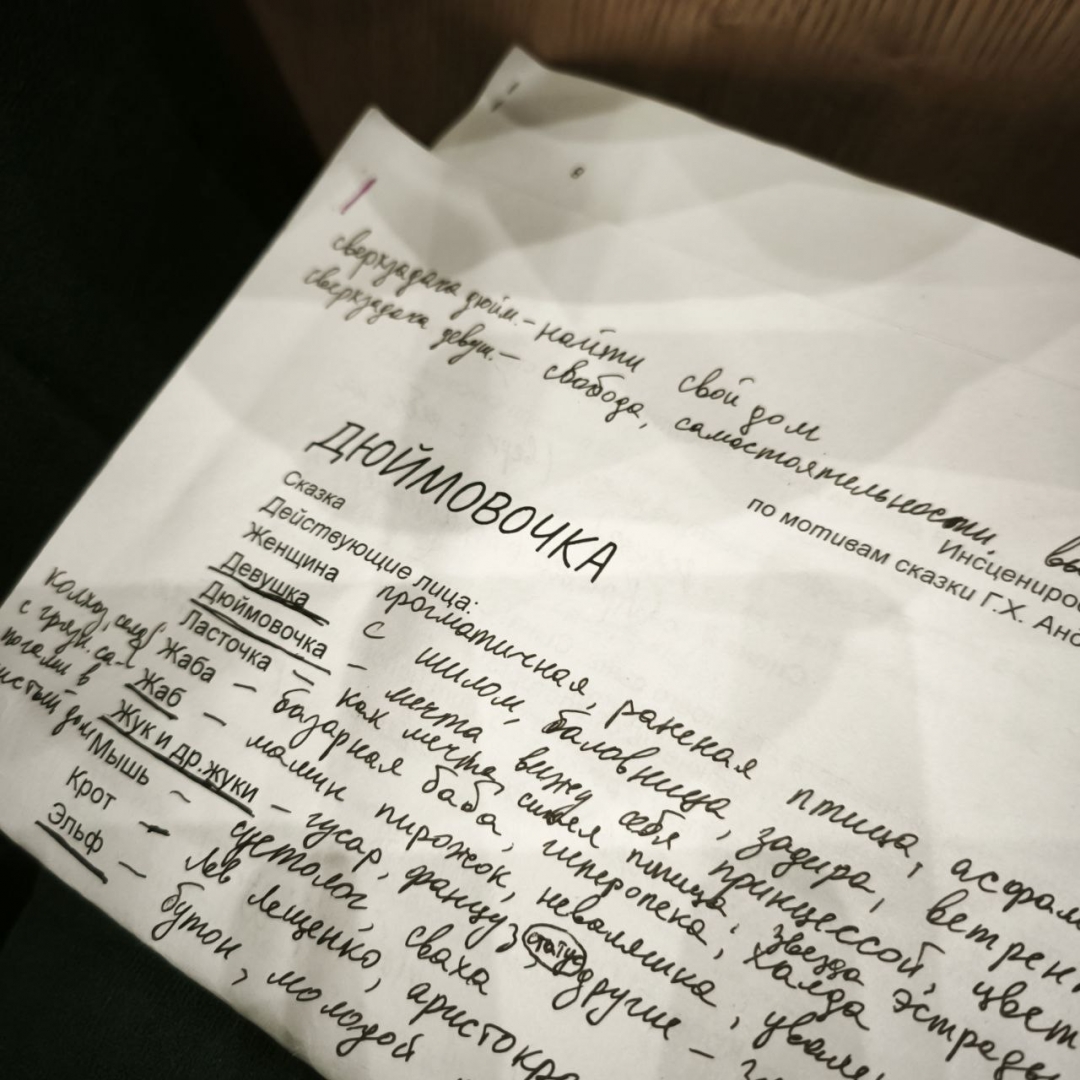 сверхзадача дюйм. – найти свой дом
сверхзадача девуш. – свобода, самостоятельность.
ДЮЙМОВОЧКА
Инсцениро
по мотивам сказки Г.Х. Анс
Сказка
Действующие лица:
Женщина прогматичная, раненая птица, асфаль
Девушка с шилом, баловница, задира, ветрен
Дюймовочка – мечта вижу себя принцессой, цвет
Ласточка – как мечта, синяя птица, звезда эстрады
Жаба – базарная баба, гиперопека, халда
Жаб – мамин пирожок, неваляшка, увале
Жук и др.жуки – гусар, француз, статус другие –
Мышь – сует сваха
Крот – Лев Лещенко, аристокра
Эльф – бутон, молодой
колхоз, село
с гряз. са-
ногами в
истый дом